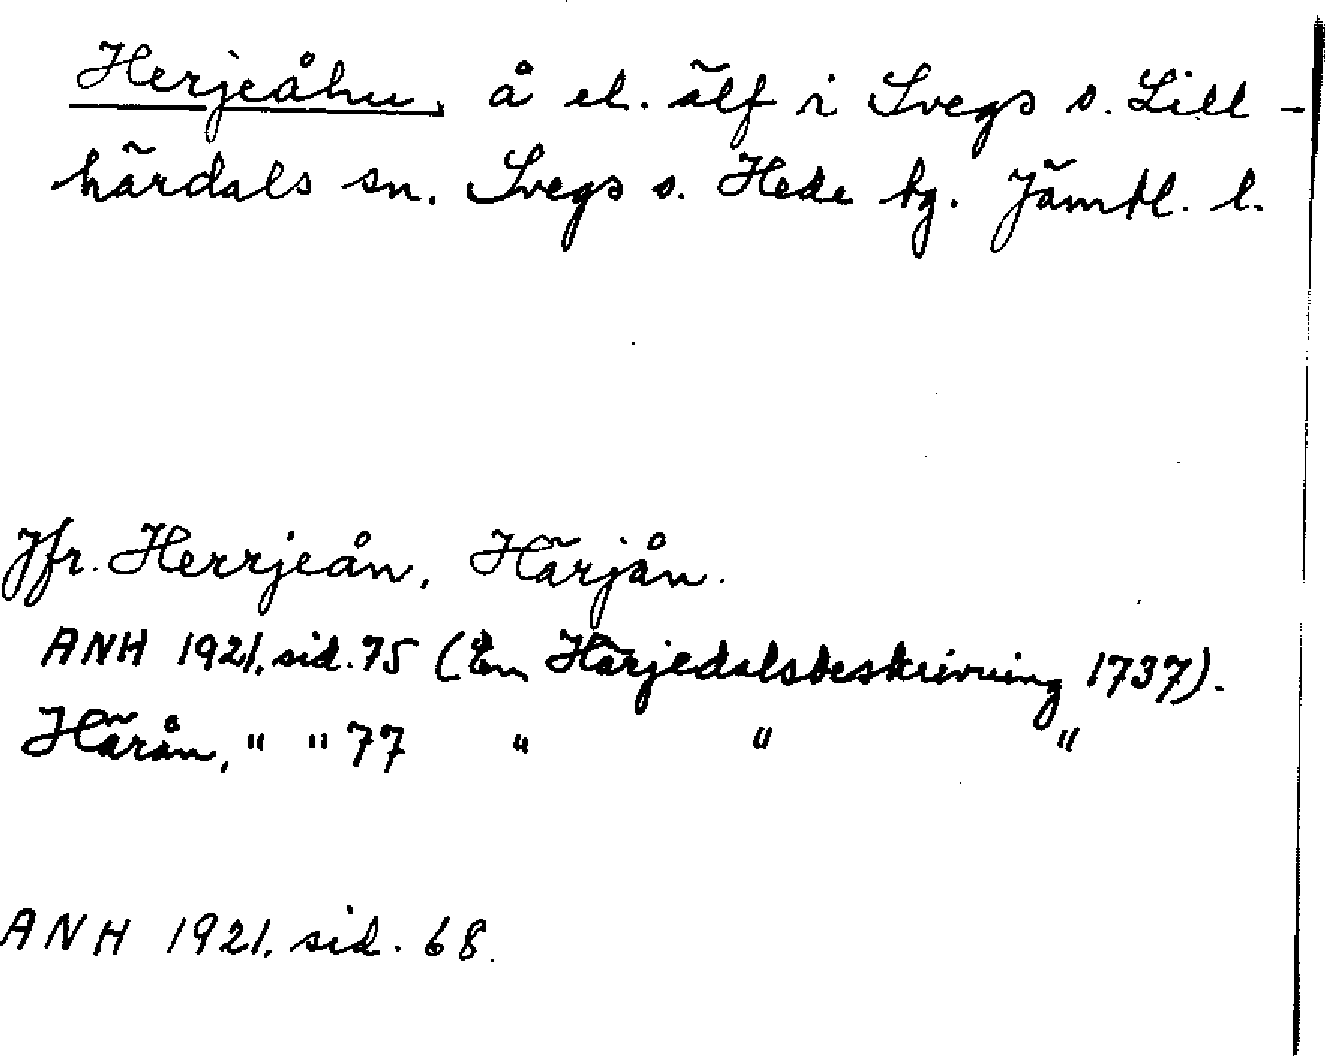 Herjeåhn, å el. älf i Svegs o. Lill-
härdals sn. Svegs o. Hede tg. Jämtl. l.
Jfr. Herrjeån, Härjån.
ANH 1921, sid. 75 (En Härjedalsbeskrivning 1737).
Härån, " " 77 " " "
ANH 1921, sid. 68.